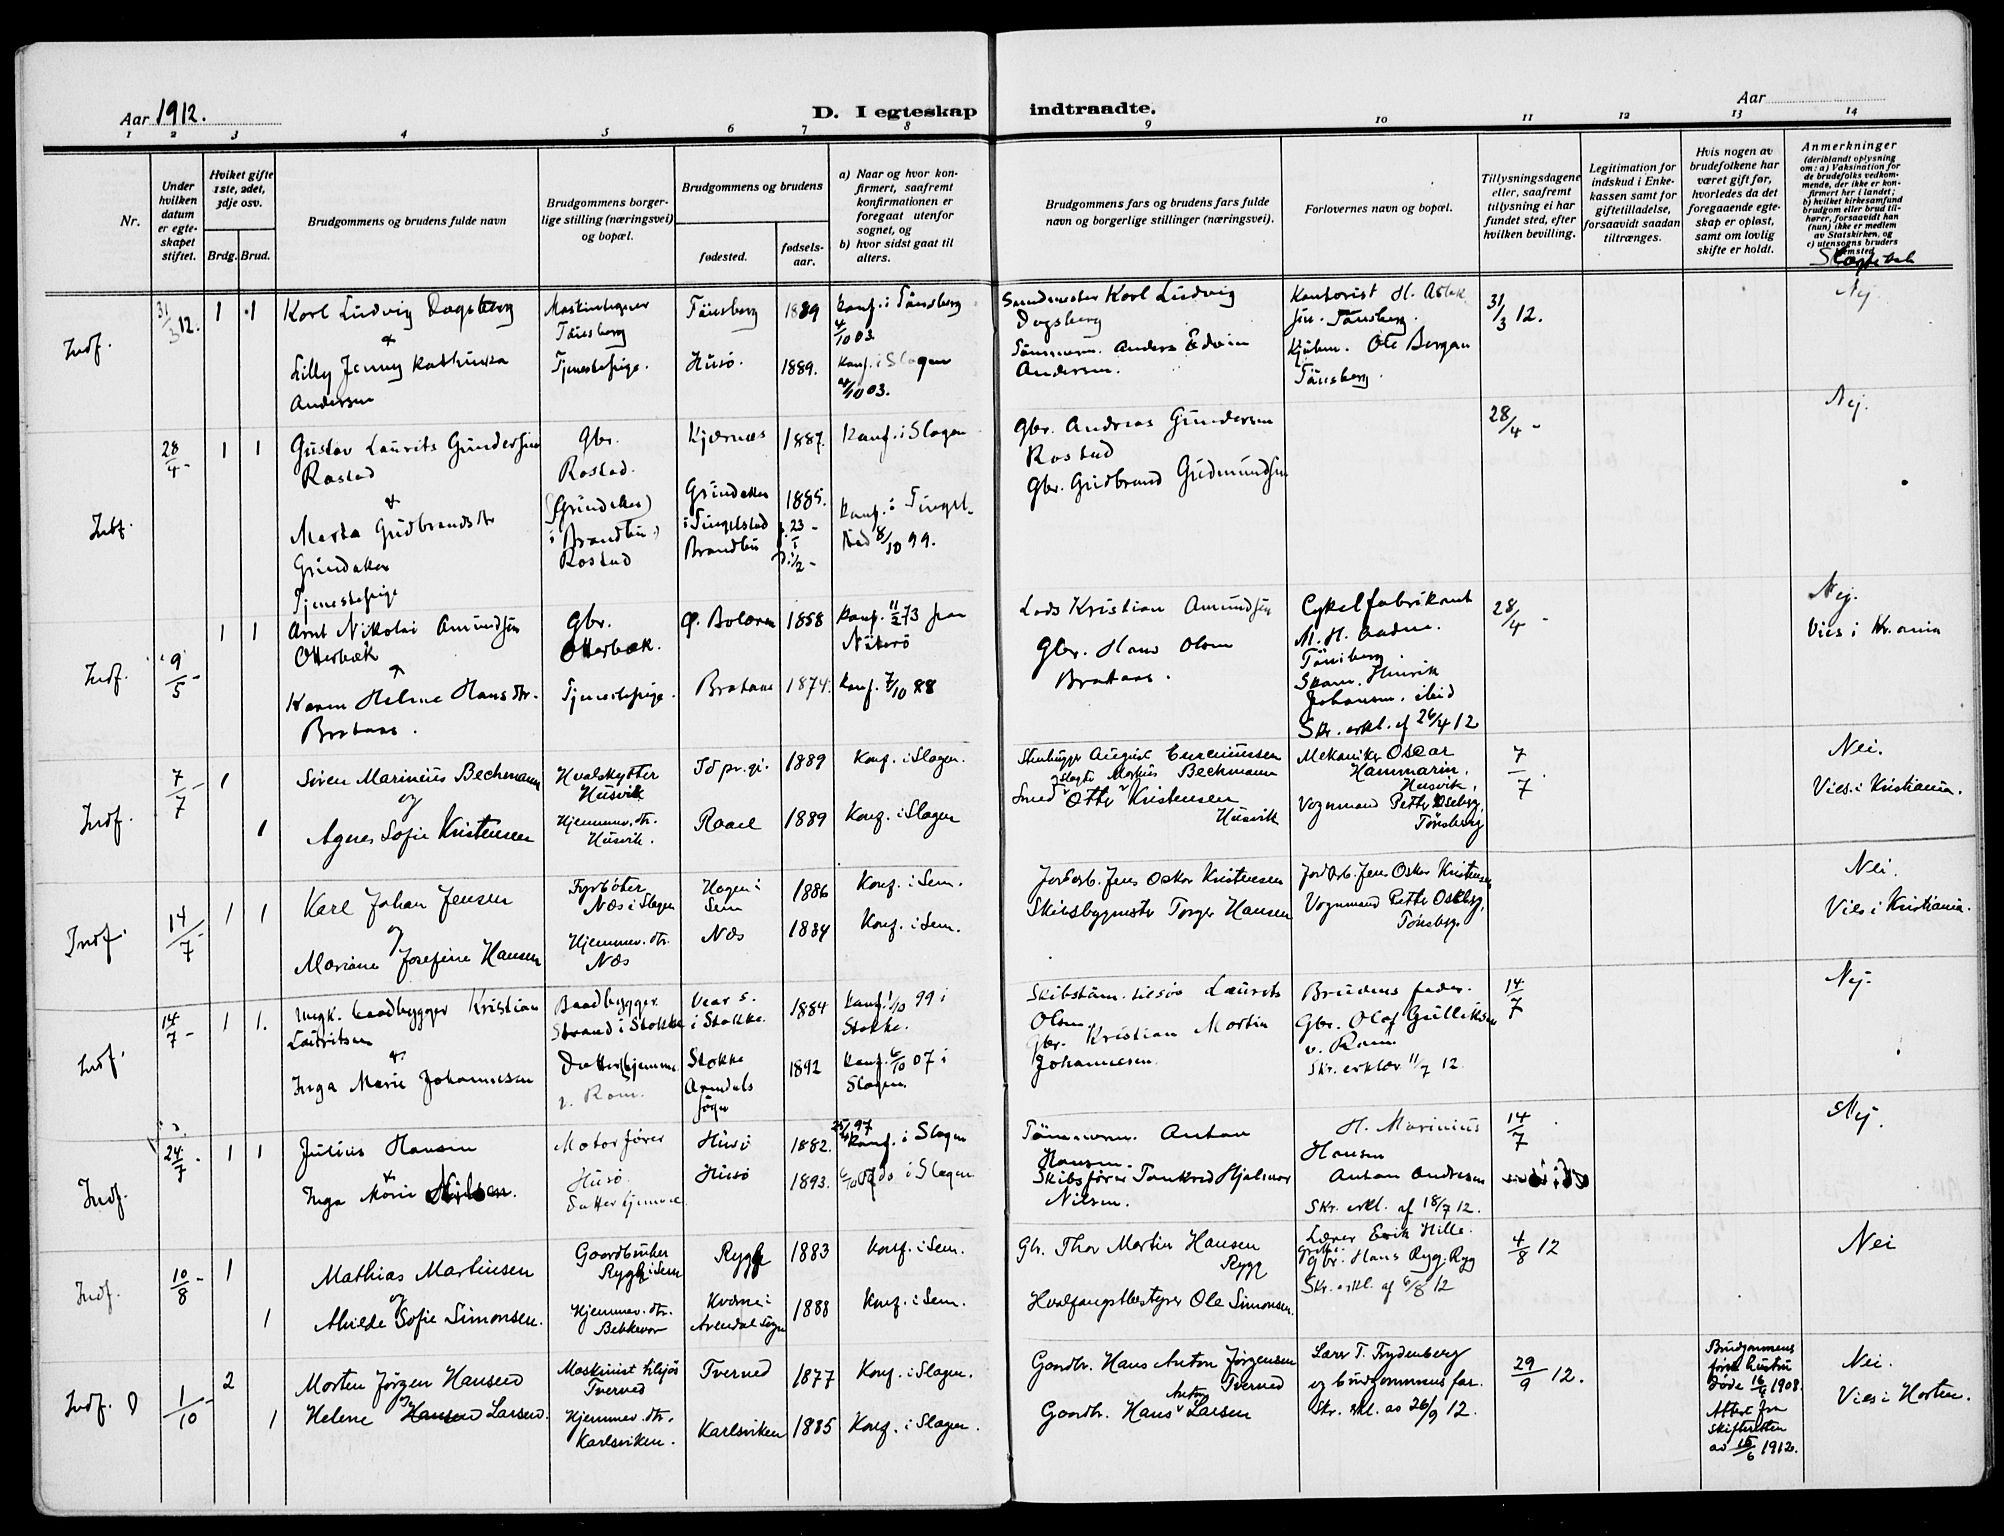 Aar 1912.
D. I egteskap indtraadte.
Aar
1 2 3 4 5 6 7 8 9 10 11 12 13 14
Nr.
Under hvilken datum er egteskapet stiftet.
Hviket gifte 1ste, 2det, 3dje osv.
Brdg. Brud.
Brudgommens og brudens fulde navn
Brudgommens borgerlige stilling (næringsvei) og bopæl.
Brudgommens og brudens
fødested.
fødselsaar.
a) Naar og hvor konfirmert, saafremt konfirmationen er foregaat utenfor sognet, og
b) hvor sidst gaat til alters.
Brudgommens fars og brudens fars fulde navn og borgerlige stillinger (næringsvei).
Forlovernes navn og bopæl.
Tillysningsdagene eller, saafremt tillysning ei har fundet sted, efter hvilken bevilling.
Legitimation for indskud i Enkekassen samt for giftetilladelse, forsaavidt saadan tiltrænges.
Hvis nogen av brudefolkene har været gift før, hvorledes da det foregaaende egteskap er opløst, samt om lovlig skifte er holdt.
Anmerkninger
(deriblandt oplysning om: a) Vaksination for de brudefolks vedkommende, der ikke er konfirmert her i landet; b) hvilket kirkesamfund brudgom eller brud tilhører, forsaavidt han (hun) ikke er medlem av Statskirken, og c) utensogns bruders hjemsted
Indf.
31/3 12. 1 1
Karl Ludvig Dagsberg
&
Lilly Jenny Kathinka
Andersen
Tønsberg
Tjenestepige.
Tønsberg 1889
Husø. 1889.
Konf. i Tønsberg
4/10 03.
Konf. i Slagen
4/10 03.
Karl Ludvig
Dagsberg
Tømmerm. Anders Edvin
Andersen.
Kontorist H.
jun. Tønsberg.
Kjøbm. Ole Bergan
Tønsberg.
31/3 12.
Nej
Indf.
28/4 - 1 1
Gustav Laurits Gundersen
Rostad
&
Marta Gudbrandsdtr
Grindaker
Tjenestepige
Gbr.
Rostad.
(Grindaker)
i Brandbu:)
Rostad
Kjærnæs 1887.
Grindaker 1885.
i Tingelstad
Brandbu
Konf. i Slagen
Konf. i Tingelstad 8/10 99.
Gbr. Andreas Gundersen
Rostad
Gbr. Gudbrand Gudmundsen
28/4 -
Nej.
Indf.
9/5 - 1 1
Arnt Nikolai Amundsen
Otterbæk
Karen Helene Hansdtr.
Brataas.
Gbr.
Otterbæk.
Tjenestepige.
Ø. Bolærne 1858
Brataas 1874.
Konf. 11/2 73 paa
Nøterø
Konf. 7/10 88
Lods Kristian Amundsen
Gbr. Hans Olsen
Brataas.
Cykelfabrikant
Tønsberg.
Henrik
Johansen. ibid
Skr. erkl. af 26/4 12
28/4 -
Nej.
Vies i Kr.ania
Indf.
7/7 - 1
1
Søren Marinius Bechmann
og
Agnes Sofie Kristensen
Hvalskytter
Husvik
Hjemmev. dtr.
Husvik.
Id pr. gj. 1889
Raael 1889
Konf. i Slagen.
Konf. i Slagen
Stenhugger August
Bechmann
Smed Otto Kristensen
Husvik
Mekaniker Oscar
Hammarin,
Husvik,
Vognmand Petter Oseberg,
Tønsberg
7/7.
Nei.
Vies i Kristiania.
Indf.
14/7 - 1 1
Karl Johan Jensen
og
Mariane Josefine Hansen
Fyrbøter
Næs i Slagen
Hjemmev. dtr.
Næs
Hagen i
Sem 1886
Næs 1884
Konf. i Sem.
Konf. i Sem.
Jordarb. Jens Oskar Kristensen
Skibsbygmstr Torger Hansen
Jordarb. Jens Oskar Kristensen
Vognmand Petter Oseberg,
Tønsberg.
Nei.
Vies i Kristiania.
Indf.
14/7 - 1 1.
Ungk. baadbygger Kristian
Lauritsen
&
Inga Marie Johannessen
Baadbygger.
Strand i Stokke
Datter hjemme
v. Ram.
Vear s.
i Stokke. 1884
Stokke
Arendals
sogn 1892
Konf. 1/10 99 i
Stokke.
Konf. 6/10 07 i
Slagen
Skibstøm. tilsøs Laurits
Olsen
Gbr. Kristian Martin
Johannesen.
Brudens fader.
Gbr. Olaf Gulliksen
v. Ram
Skr. erklær. 11/7 12.
14/7
Nej.
Indf.
24/7 - 1 1
Julius Hansen
&
Inga Marie Nilsen.
Motorfører
Husø.
Datter hjemme
Husø 1882.
Husø 1893.
Konf. i Slagen
i Slagen
Tømmerm. Anton
Hansen.
Skibsfører Tankred Hjalmar
Nilsen.
H. Marinius
Hansen
Anton Andresen
Skr. erkl. af 18/7 12.
14/7.
Nej.
Indf.
10/8 - 1
1
Mathias Martinsen
og
Alvilde Sofie Simonsen.
Gaardbruker
Rygg i Sem
Hjemmev. dtr.
Bekkevar
Rygg 1883
Kverne i
Arendal sogn 1888
Konf. i Sem.
Konf. i Sem.
Gbr. Thor Martin Hansen
Rygg
Hvalfangstbestyrer Ole Simonsen.
Lærer Erik Hille.
Gbr. Hans Ryg. Ryg
Skr. erkl. af 6/8 12
4/8 12
Nei
Indf.
1/10 - 2
1
Morten Jørgen Hansen
Helene Larsen.
Maskinist tilsjøs
Tverved
Hjemmev. dtr.
Karlsviken.
Tverved 1877
Karlsviken 1885
Konf. i Slagen.
Konf. i Slagen.
Gaardbr. Hans Anton Jørgensen
Tverved
Gaardbr. Hans Anton Larsen
Lærer T. Frydenberg
og brudgommens far.
Skr. erkl. av 26/9 12.
29/9 12.
Brudgommens
første hustru
døde 16/9 1908.
Attest fra
skifteretten
av 15/6 1912.
Nei.
Vies i Horten.